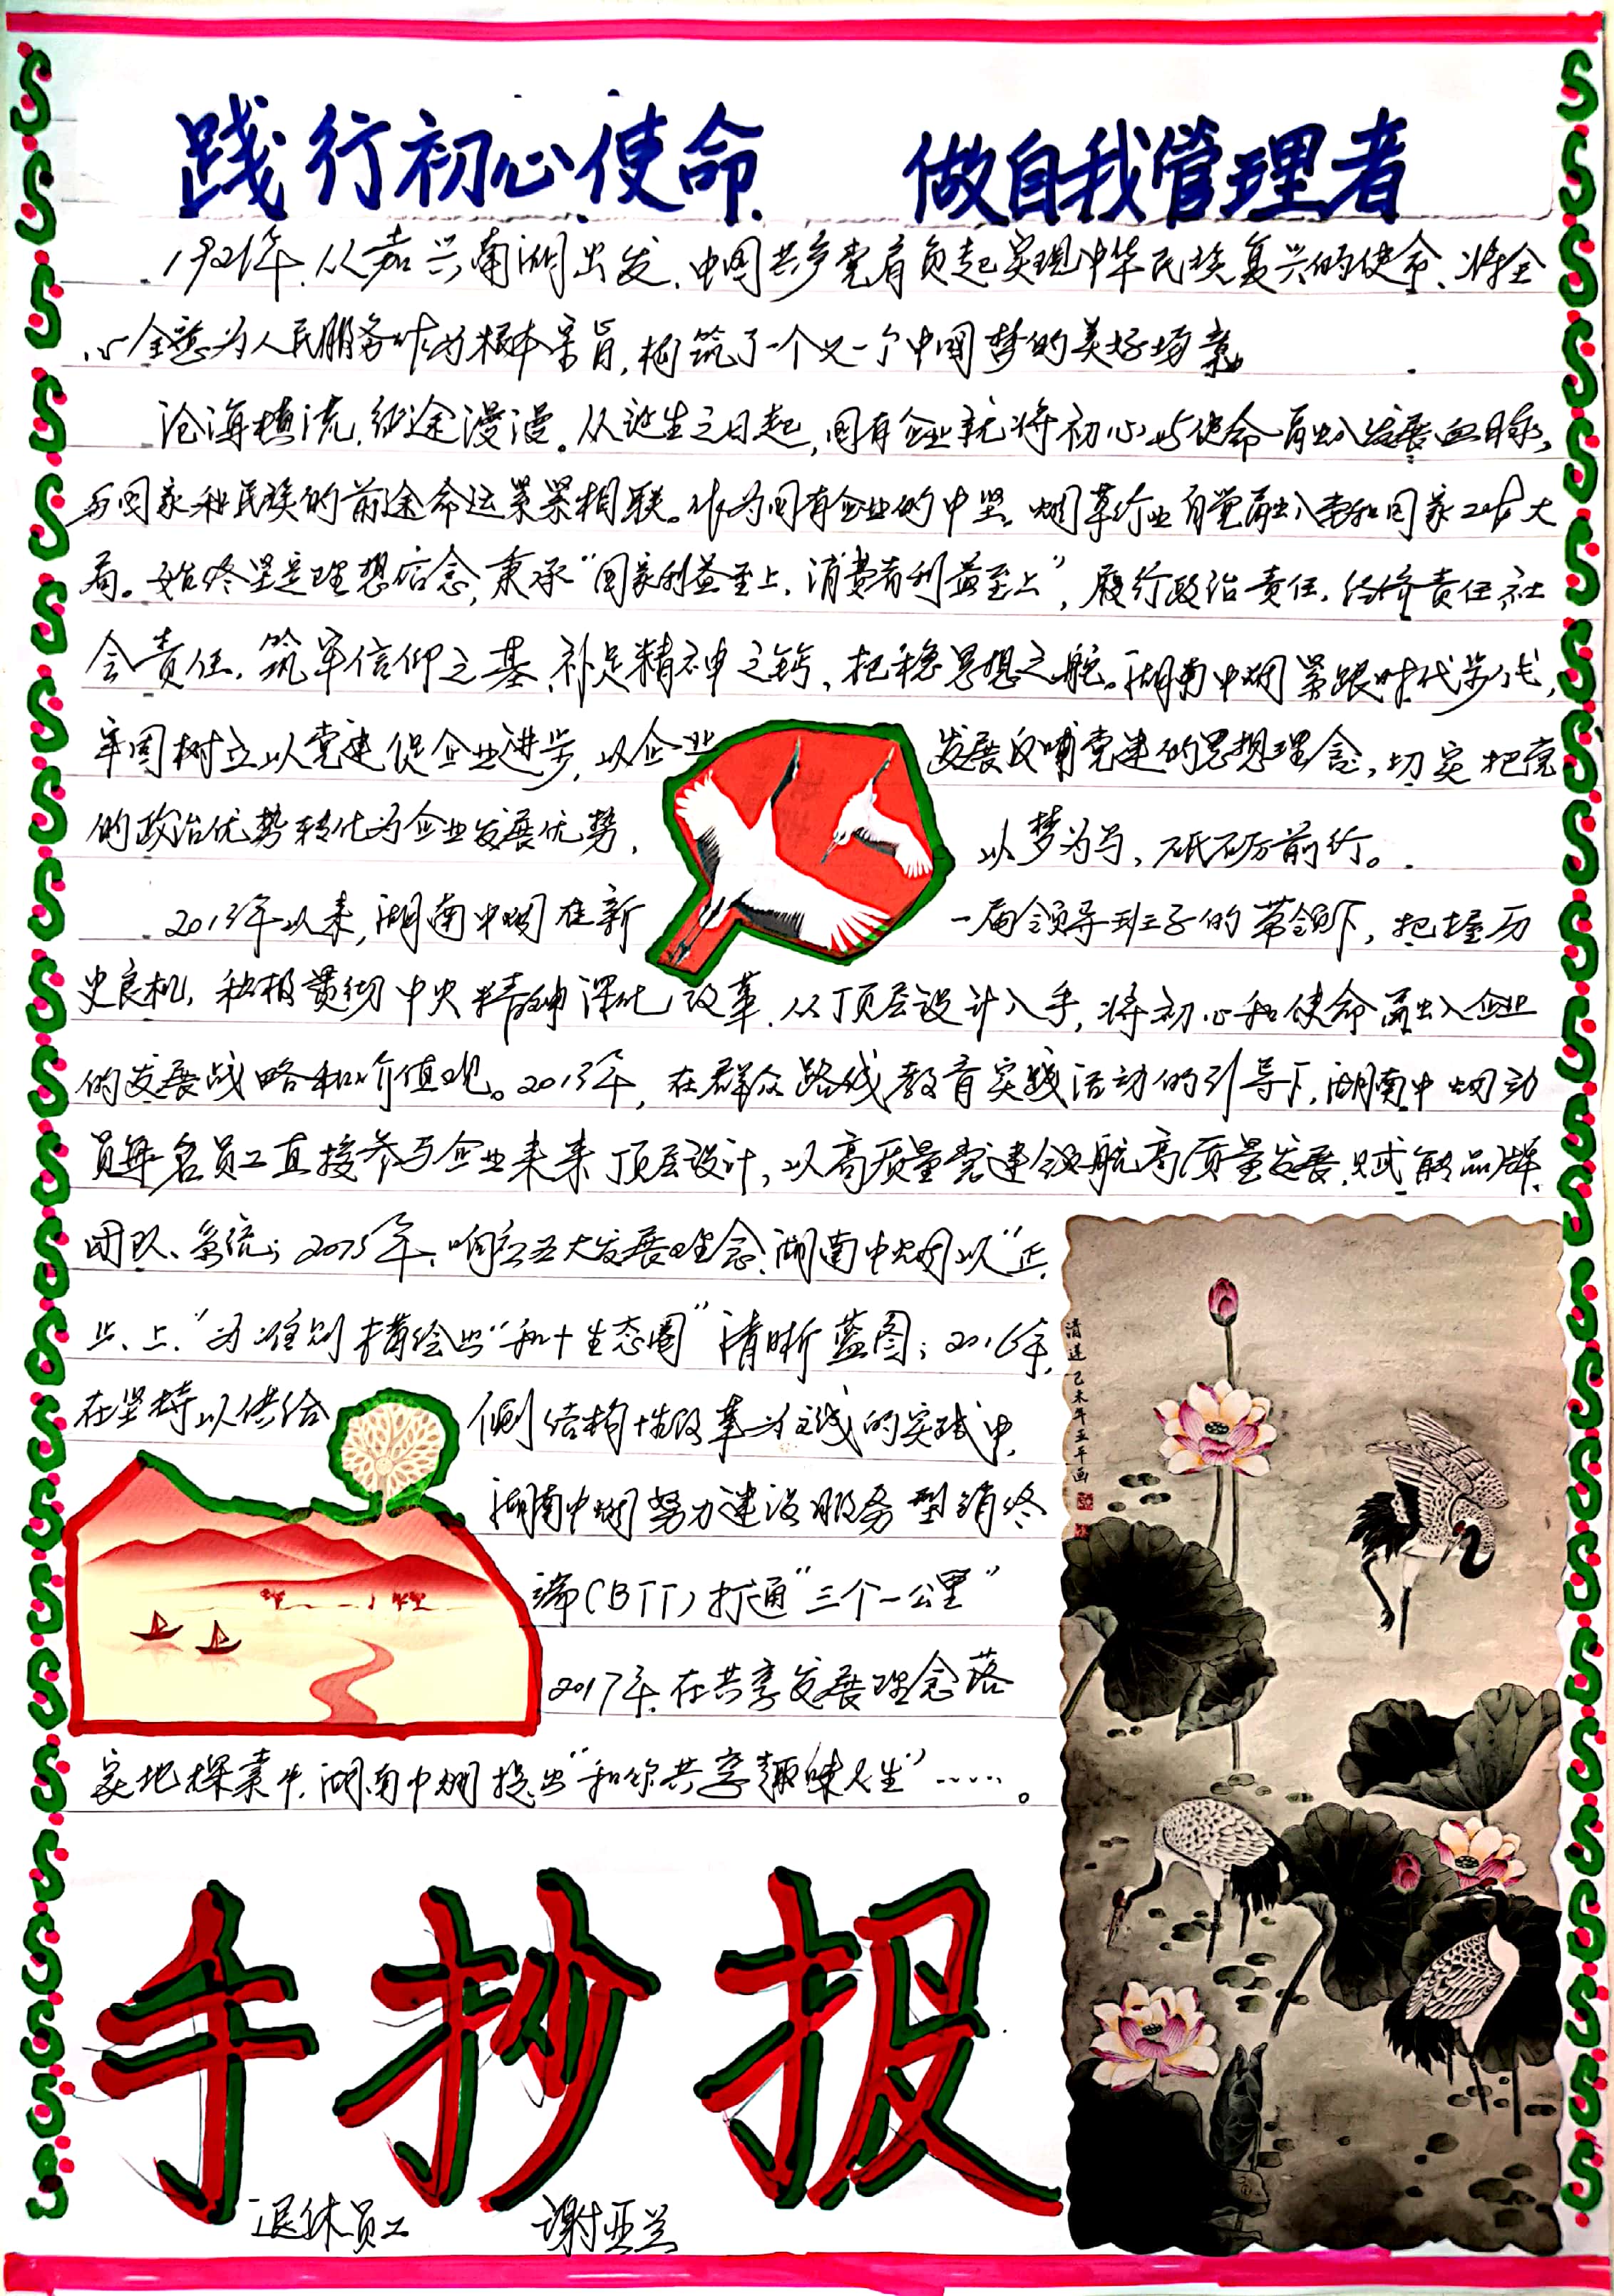 践行初心使命 做自我管理者
1921年，从嘉兴南湖出发，中国共产党肩负起实现中华民族复兴的使命，将全
心全意为人民服务作为根本宗旨，构筑了一个又一个中国梦的美好场景。
沧海横流，征途漫漫。从诞生之日起，国有企业就将初心与使命融入发展血脉，
与国家和民族的前途命运紧紧相联。作为国有企业的中坚，烟草行业自觉融入党和国家工作大
局。始终坚定理想信念，秉承“国家利益至上，消费者利益至上”，履行政治责任，经济责任，社
会责任，筑牢信仰之基，补足精神之钙，把稳思想之舵。湖南中烟紧跟时代步伐，
牢固树立以党建促企业进步，以企业发展反哺党建的思想理念，切实把党
的政治优势转化为企业发展优势，以梦为马，砥砺前行。
2013年以来，湖南中烟在新一届领导班子的带领下，把握历
史良机，积极贯彻中央精神深化改革，从顶层设计入手，将初心和使命融入企业
的发展战略和价值观。2013年，在群众路线教育实践活动的引导下，湖南中烟动
员每名员工直接参与企业未来顶层设计，以高质量党建领航高质量发展，赋能品牌、
团队、系统；2015年，响应五大发展理念，湖南中烟以“正、
止、上、”为准则描绘出“和+生态圈”清晰蓝图；2016年，
在坚持以供给侧结构性改革为主线的实践中，
湖南中烟努力建设服务型销终
端（BTT）打通“三个一公里”
2017年，在共享发展理念落
实地探索中，湖南中烟提出“和你共享趣味人生”……。
清莲 己未年亚平画
手抄报
退休员工 谢亚兰